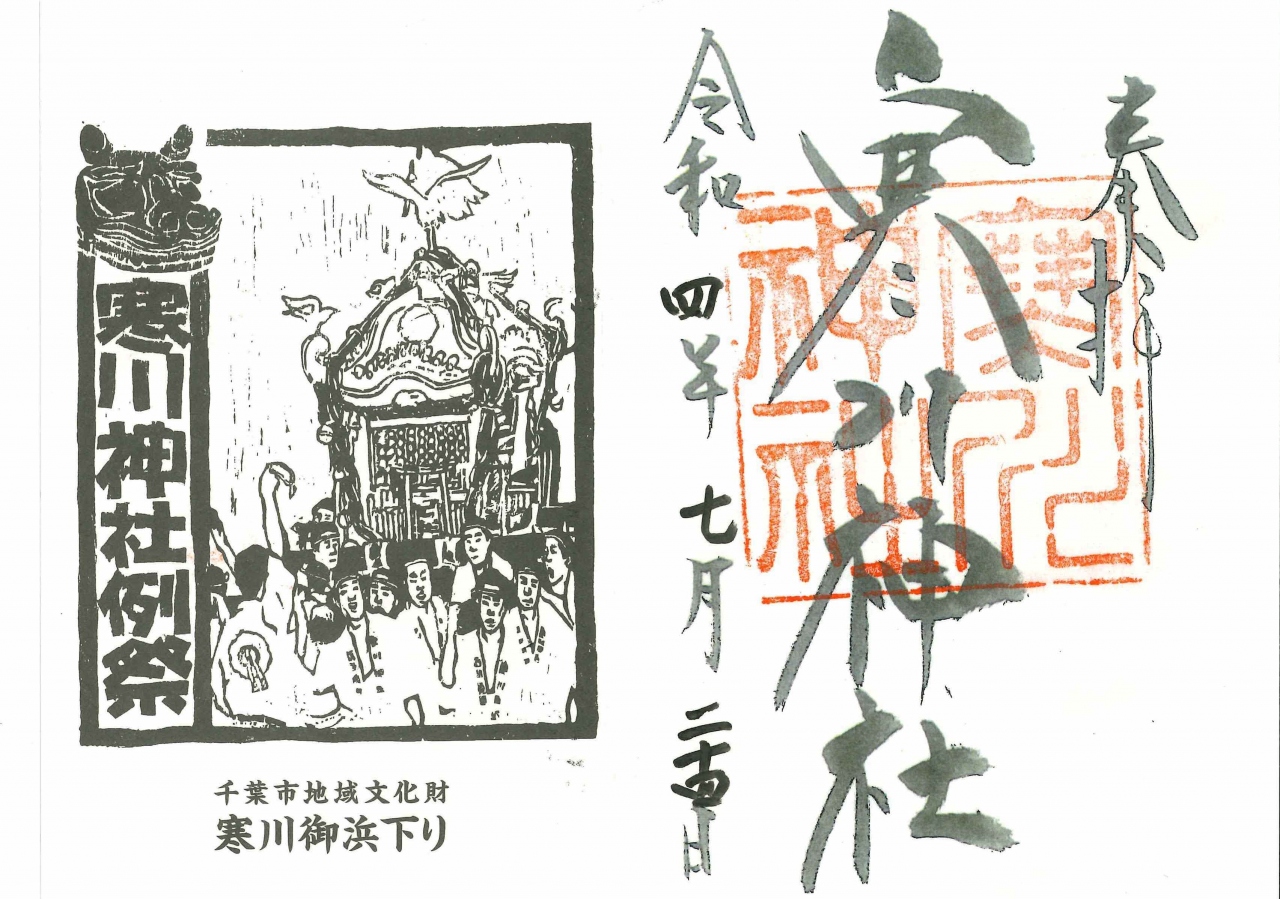 奉拝
寒川神社
寒川
神社
令和四年七月二十四日
寒川神社例祭
千葉市地域文化財
寒川御浜下り